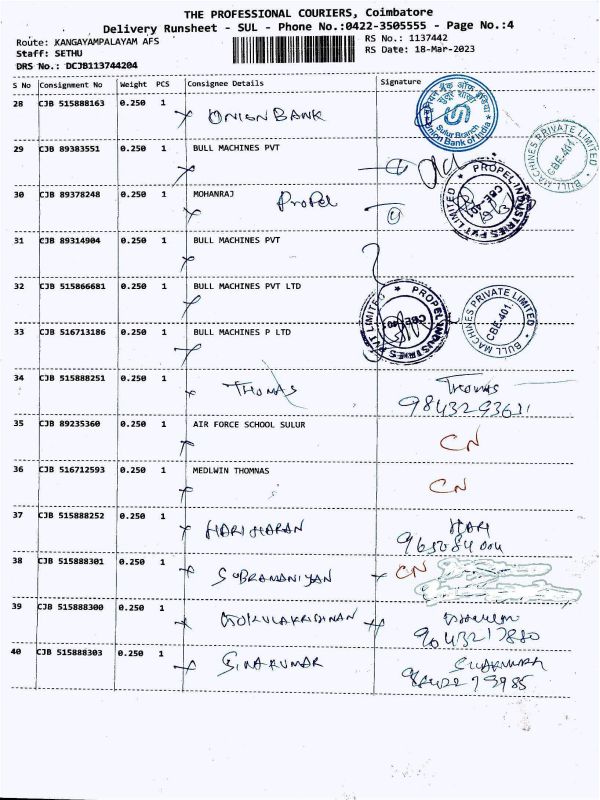 THE PROFESSIONAL COURIERS, Coimbatore
Delivery Runsheet - SUL - Phone No.:0422-3505555 - Page No.:4
Route: KANGAYAMPALAYAM AFS RS No.: 1137442
Staff: SETHU RS Date: 18-Mar-2023
DRS No.: DCJB113744204
S No Consignment No Weight PCS Consignee Details Signature
28 CJB 515888163 0.250 1 UNION BANK
Sulur Branch
Union Bank of India
29 CJB 89383551 0.250 1 BULL MACHINES PVT
BULL MACHINES PRIVATE LIMITED
CBE-401
30 CJB 89378248 0.250 1 MOHANRAJ Propel
PROPEL INDUSTRIES PVT LIMITED
31 CJB 89314904 0.250 1 BULL MACHINES PVT
32 CJB 515866681 0.250 1 BULL MACHINES PVT LTD
PROPEL INDUSTRIES PVT LIMITED
BULL MACHINES PRIVATE LIMITED
CBE-401
33 CJB 516713186 0.250 1 BULL MACHINES P LTD
34 CJB 515888251 0.250 1 THOMAS Thomas
35 CJB 89235360 0.250 1 AIR FORCE SCHOOL SULUR CN
36 CJB 516712593 0.250 1 MEDLWIN THOMNAS CN
37 CJB 515888252 0.250 1 HARIHARAN HARI
38 CJB 515888301 0.250 1 SUBRAMANIYAN CN
39 CJB 515888300 0.250 1 GOKULAKRISHNAN
9043217880
40 CJB 515888303 0.250 1